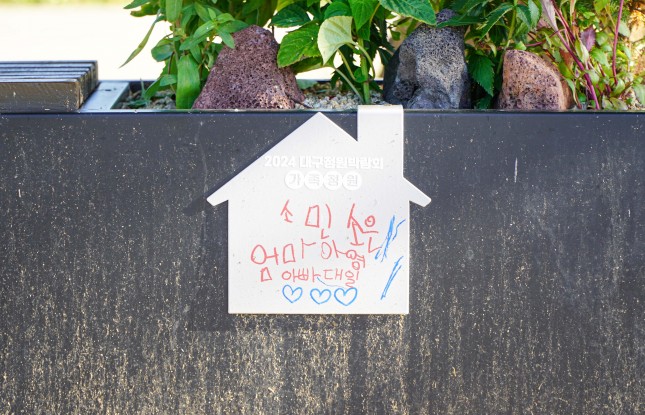 2024 대구정원박람회
가족정원
소민 손
엄마 아영
아빠 대일